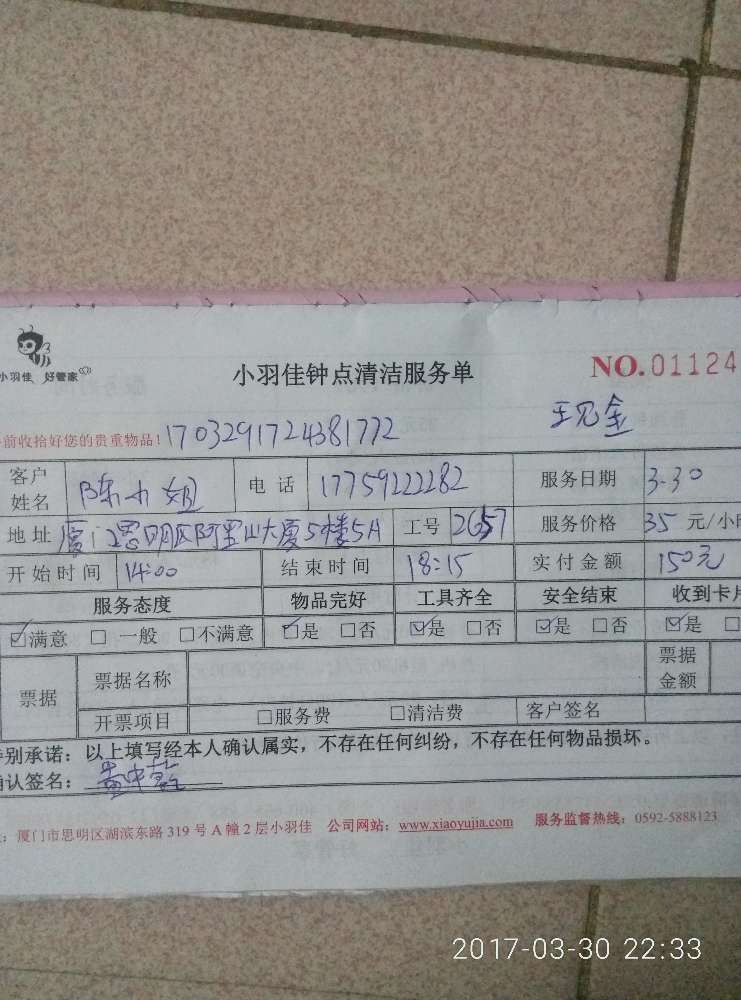 小羽佳 好管家
小羽佳钟点清洁服务单
NO.01124
现金
前收拾好您的贵重物品! 1703291724381772
客户姓名 陈小姐 电话 17759222282 服务日期 3.30
地址 厦门思明区阿里山大厦5楼5A 工号 2657 服务价格 35 元/小时
开始时间 14:00 结束时间 18:15 实付金额 150元
服务态度 物品完好 工具齐全 安全结束 收到卡片
☑满意 □一般 □不满意 ☑是 □否 ☑是 □否 ☑是 □否 ☑是 □
票据 票据名称 票据金额
开票项目 □服务费 □清洁费 客户签名
特别承诺:以上填写经本人确认属实,不存在任何纠纷,不存在任何物品损坏。
确认签名:
:厦门市思明区湖滨东路319号A幢2层小羽佳 公司网站:www.xiaoyujia.com 服务监督热线:0592-5888123
2017-03-30 22:33